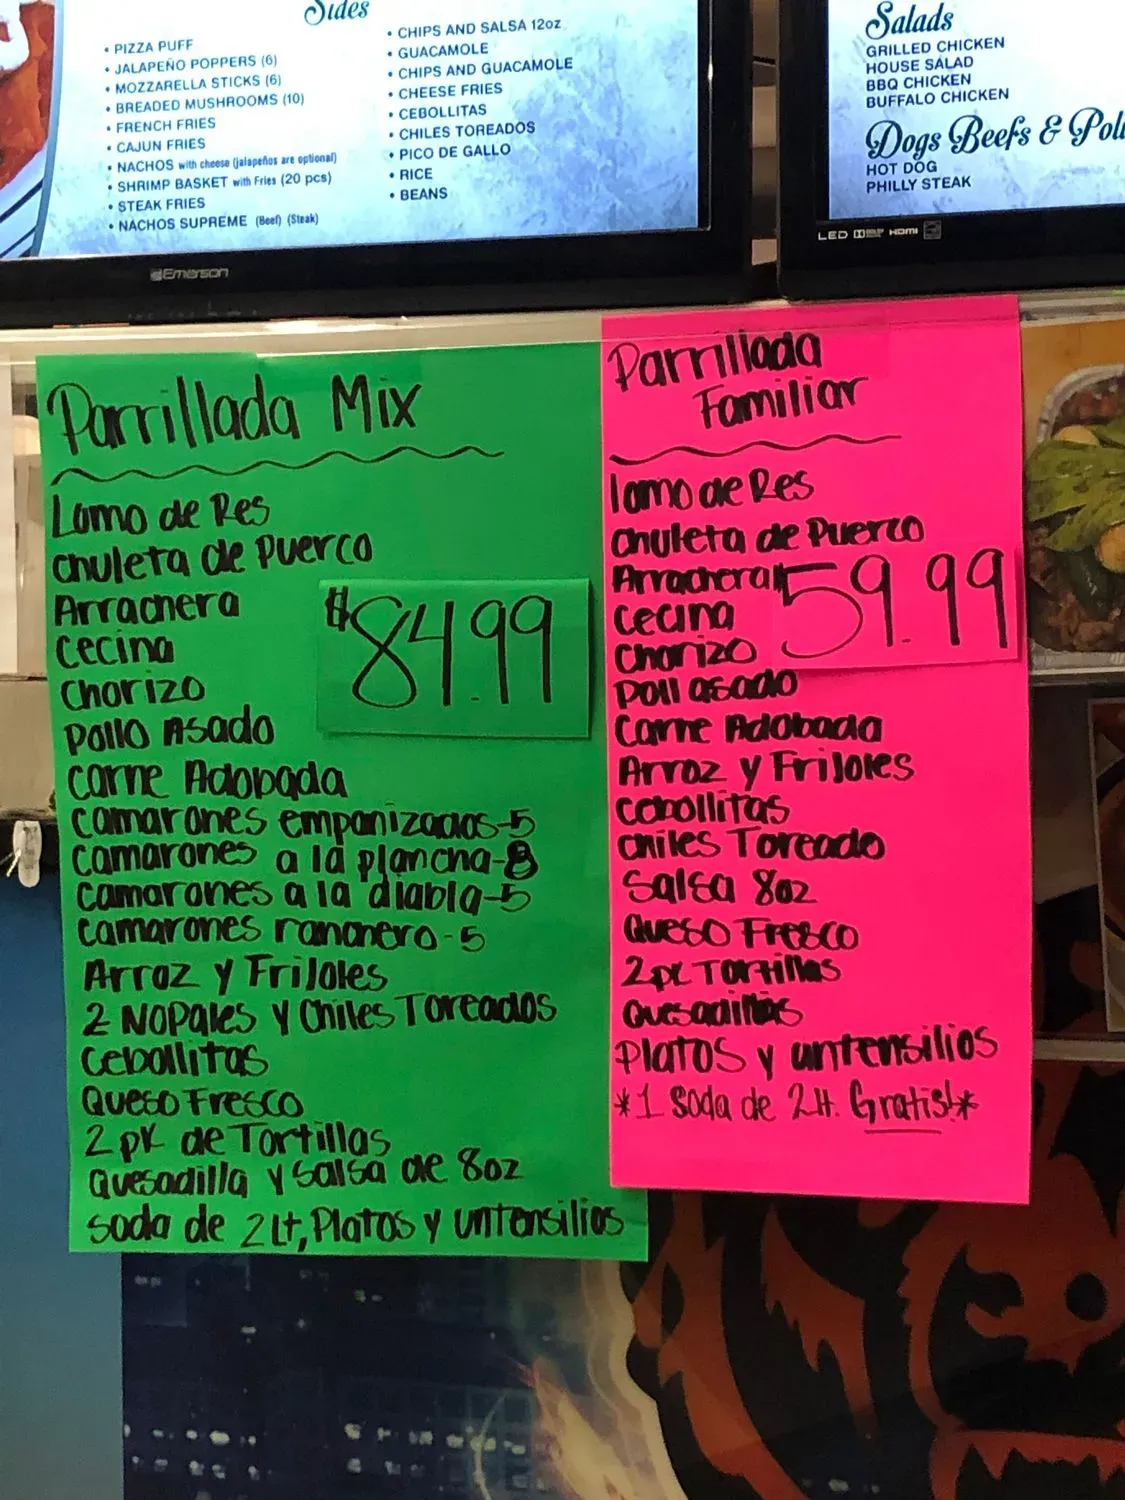 Sides
• PIZZA PUFF
• JALAPEÑO POPPERS (6)
• MOZZARELLA STICKS (6)
• BREADED MUSHROOMS (10)
• FRENCH FRIES
• CAJUN FRIES
• NACHOS with cheese (jalapeños are optional)
• SHRIMP BASKET with Fries (20 pcs)
• STEAK FRIES
• NACHOS SUPREME (Beef) (Steak)
• CHIPS AND SALSA 12oz
• GUACAMOLE
• CHIPS AND GUACAMOLE
• CHEESE FRIES
• CEBOLLITAS
• CHILES TOREADOS
• PICO DE GALLO
• RICE
• BEANS
Emerson
Salads
GRILLED CHICKEN
HOUSE SALAD
BBQ CHICKEN
BUFFALO CHICKEN
Dogs Beefs & Poli
HOT DOG
PHILLY STEAK
LED HDMI
Parrillada Mix
Lomo de Res
Chuleta de Puerco
Arrachera
Cecina
Chorizo
Pollo Asado
Carne Adobada
Camarones empanizados-5
Camarones a la plancha-8
Camarones a la diabla-5
Camarones ranchero-5
Arroz y Frijoles
2 Nopales y Chiles Toreados
Cebollitas
Queso Fresco
2 pk de Tortillas
Quesadilla y Salsa de 8oz
Soda de 2Lt, Platos y untensilios
$84.99
Parrillada
Familiar
lomo de Res
Chuleta de Puerco
Arrachera
Cecina
Chorizo
Poll asado
Carne Adobada
Arroz y Frijoles
Cebollitas
Chiles Toreado
Salsa 8oz
Queso Fresco
2pk Tortillas
Quesadillas
Platos y untensilios
*1 Soda de 2lt. Gratis!*
59.99